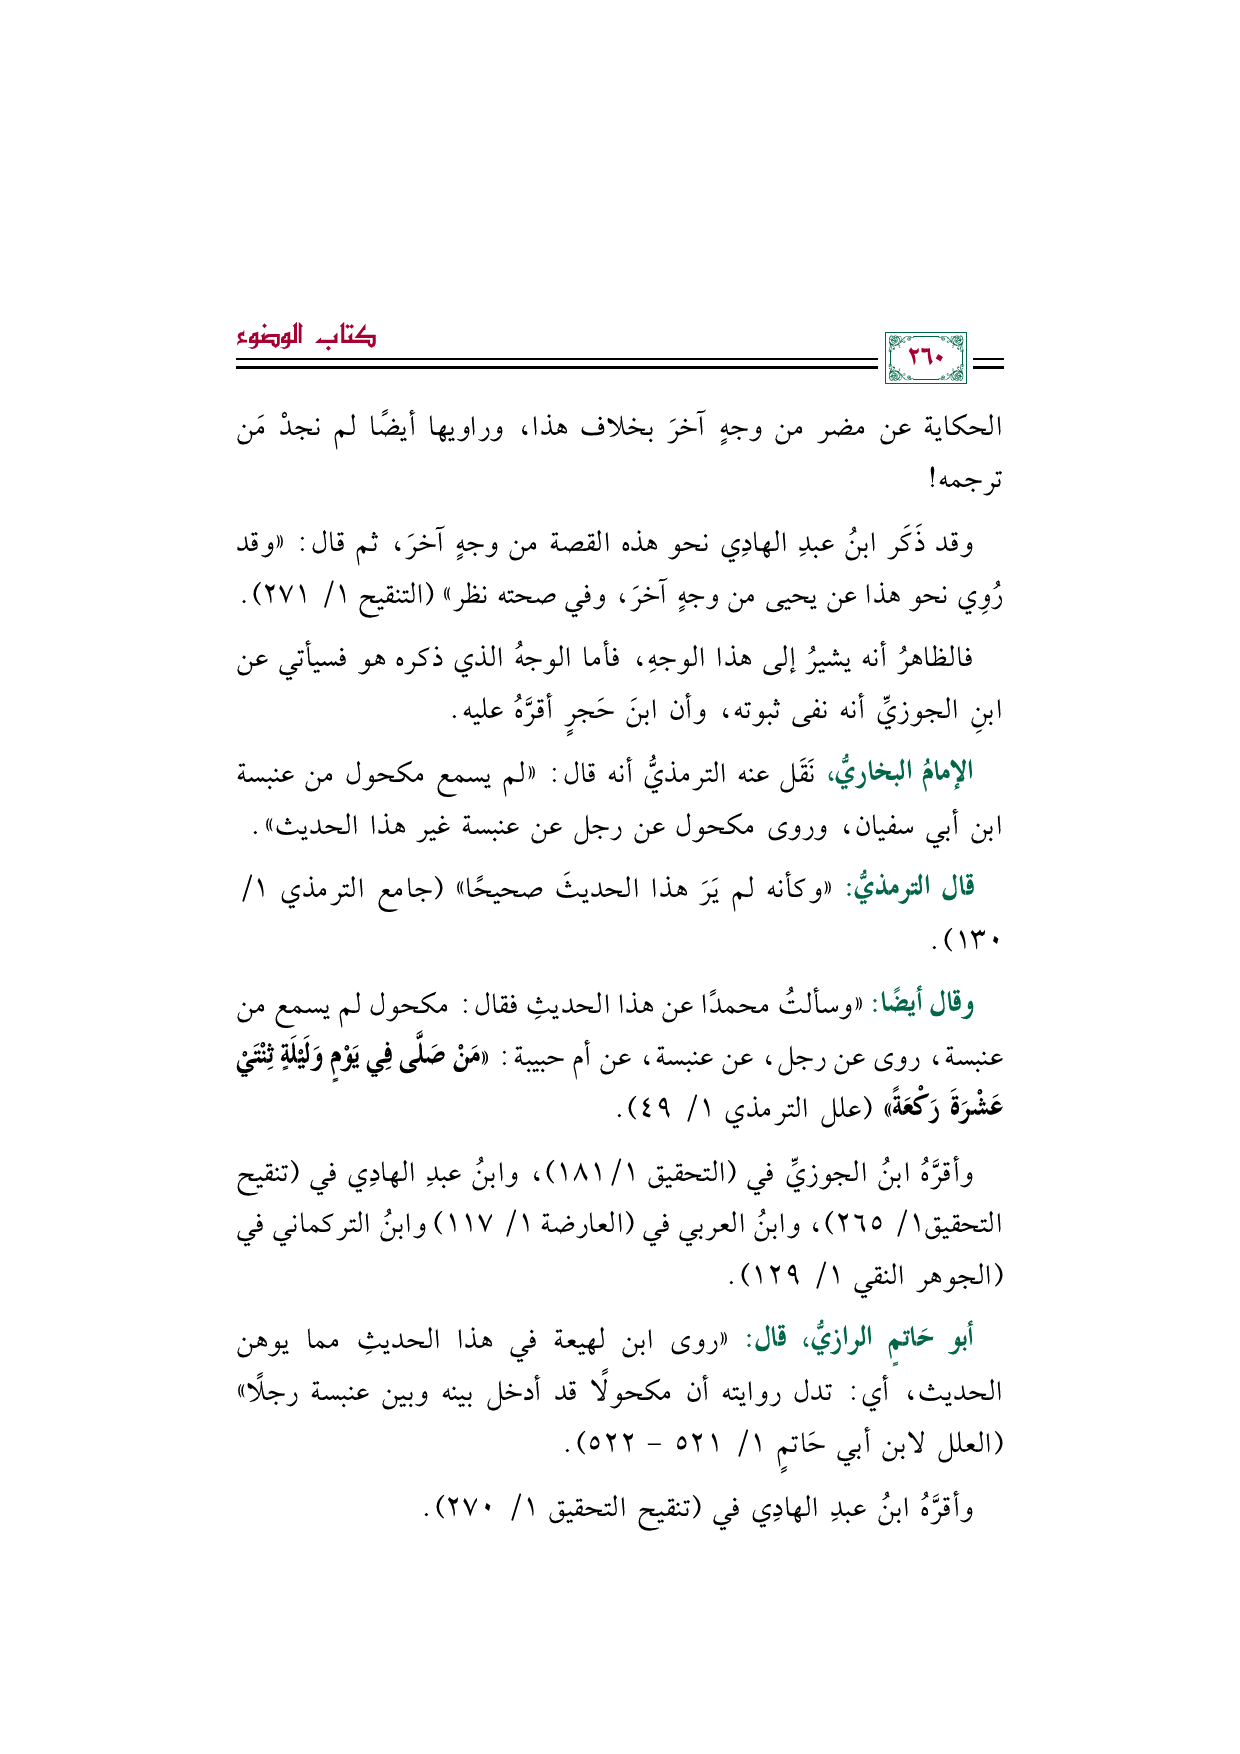 كتاب الوضوء
٢٦٠
الحكاية عن مضر من وجهٍ آخرَ بخلاف هذا، وراويها أيضًا لم نجدْ مَن
ترجمه!
وقد ذَكَر ابنُ عبدِ الهادِي نحو هذه القصة من وجهٍ آخرَ، ثم قال: «وقد
رُوِي نحو هذا عن يحيى من وجهٍ آخرَ، وفي صحته نظر» (التنقيح ١/ ٢٧١).
فالظاهرُ أنه يشيرُ إلى هذا الوجهِ، فأما الوجهُ الذي ذكره هو فسيأتي عن
ابنِ الجوزيِّ أنه نفى ثبوته، وأن ابنَ حَجرٍ أقرَّهُ عليه.
الإمامُ البخاريُّ، نَقَل عنه الترمذيُّ أنه قال: «لم يسمع مكحول من عنبسة
ابن أبي سفيان، وروى مكحول عن رجل عن عنبسة غير هذا الحديث».
قال الترمذيُّ: «وكأنه لم يَرَ هذا الحديثَ صحيحًا» (جامع الترمذي ١/
١٣٠).
وقال أيضًا: «وسألتُ محمدًا عن هذا الحديثِ فقال: مكحول لم يسمع من
عنبسة، روى عن رجل، عن عنبسة، عن أم حبيبة: «مَنْ صَلَّى فِي يَوْمٍ وَلَيْلَةٍ ثِنْتَيْ
عَشْرَةَ رَكْعَةً» (علل الترمذي ١/ ٤٩).
وأقرَّهُ ابنُ الجوزيِّ في (التحقيق ١/ ١٨١)، وابنُ عبدِ الهادِي في (تنقيح
التحقيق١/ ٢٦٥)، وابنُ العربي في (العارضة ١/ ١١٧) وابنُ التركماني في
(الجوهر النقي ١/ ١٢٩).
أبو حَاتمٍ الرازيُّ، قال: «روى ابن لهيعة في هذا الحديثِ مما يوهن
الحديث، أي: تدل روايته أن مكحولًا قد أدخل بينه وبين عنبسة رجلًا»
(العلل لابن أبي حَاتمٍ ١/ ٥٢١ – ٥٢٢).
وأقرَّهُ ابنُ عبدِ الهادِي في (تنقيح التحقيق ١/ ٢٧٠).